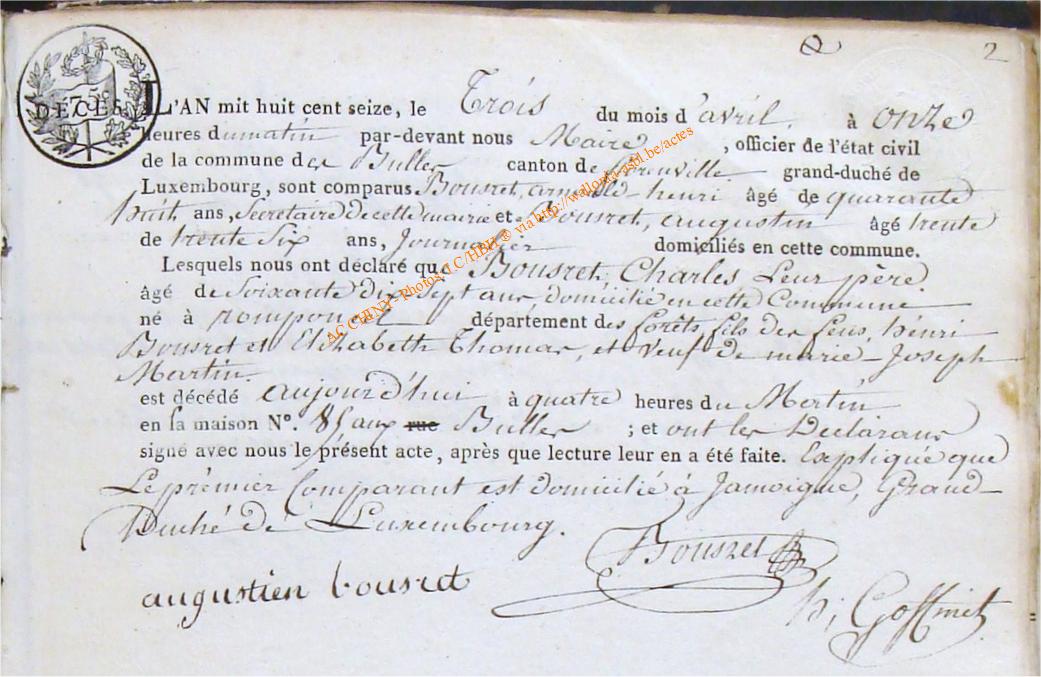 2
DÉCÈS. L'AN mit huit cent seize, le Trois du mois d'avril. à onze
heures du matin par-devant nous Maire, officier de l'état civil
de la commune des Bulles canton de florenville. grand-duché de
Luxembourg, sont comparus Bousret, arnould-henri âgé de quarante
huit ans, Secretaire de cette mairie et Bousret, augustin âgé trente
de trente Six ans, Journalier domiciliés en cette commune.
Lesquels nous ont déclaré que Bousret, Charles Leur père.
âgé de Soixante dix Sept ans domicilié en cette Commune
né à romponcel département des forêts, fils des feus, henri
Bousret et Elizabeth Thomas, et veuf de marie-Joseph
Martin.
est décédé aujourd'hui à quatre heures du Mertin
en la maison N°. 85 aux rue Bulles ; et ont les Déclarans
signé avec nous le présent acte, après que lecture leur en a été faite. Expliqué que
Le prémier Comparant est domicilié à Jamoigne, Grand-
Duché de Luxembourg.
Bousret
augustien bousret
h; Goffinet
AC CHINY- Photos J.C/HBH ® via http://wallonia-asbl.be/actes